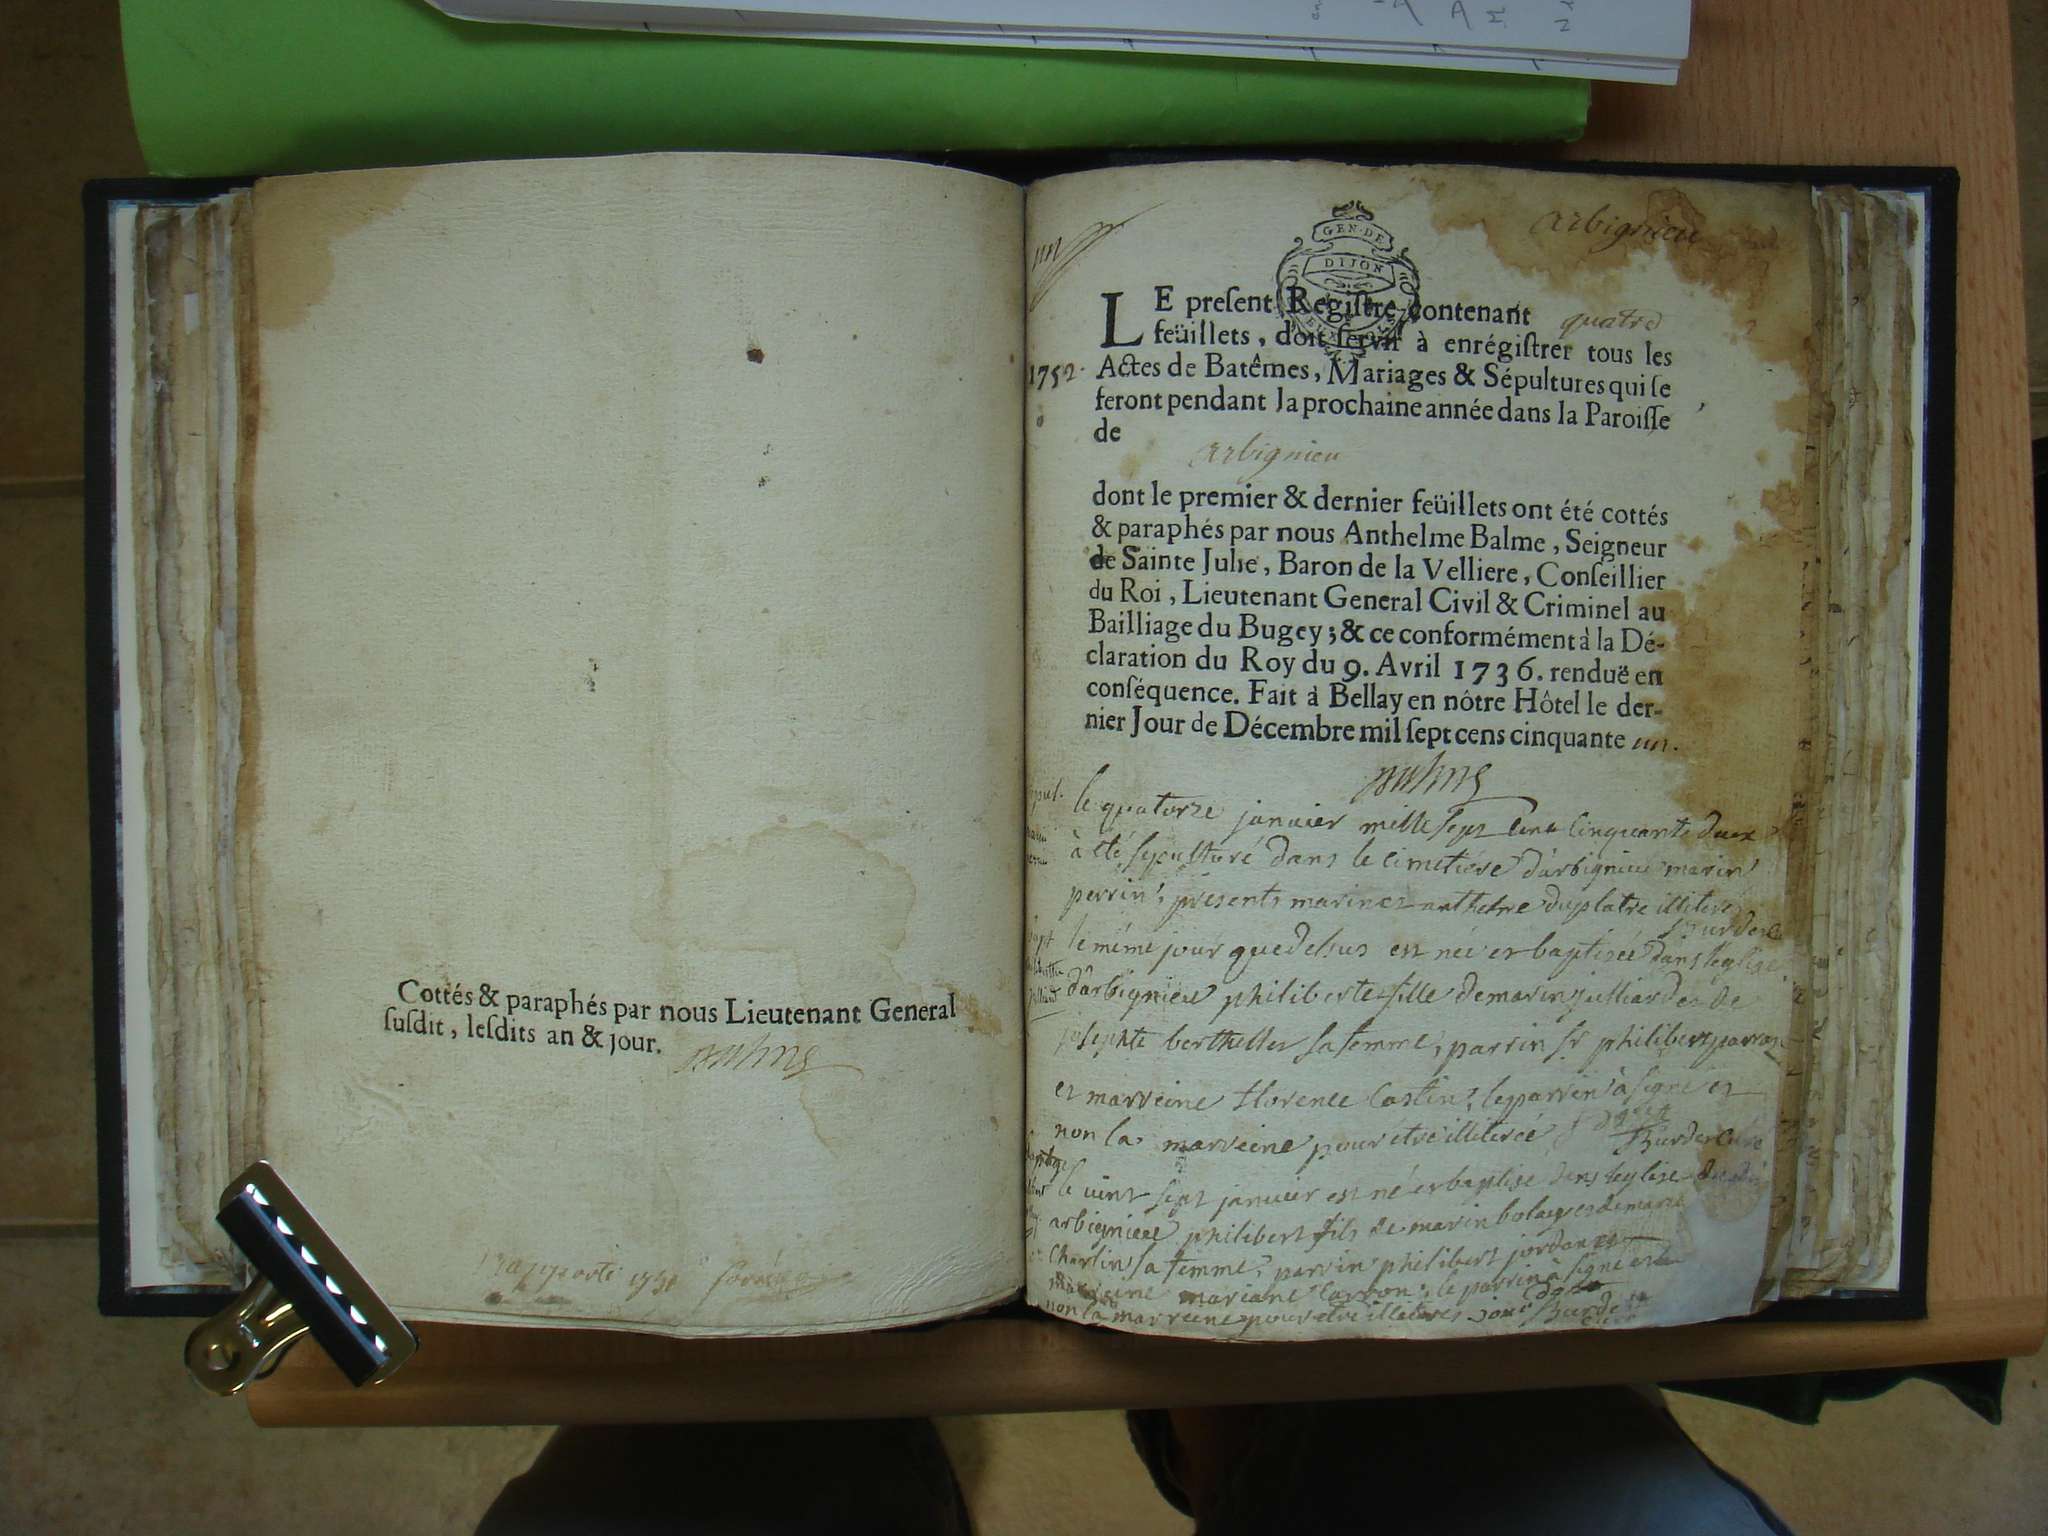 Cottés & paraphés par nous Lieutenant General
ſuſdit, leſdits an & jour.
arbignieu
GEN · DE
DIJON
LE preſent Regiſtre contenant quatre
feüillets, doit ſervir à enrégiſtrer tous les
1752. Actes de Batêmes, Mariages & Sépultures qui ſe
feront pendant la prochaine année dans la Paroiſſe
de
arbignieu
dont le premier & dernier feüillets ont été cottés
& paraphés par nous Anthelme Balme, Seigneur
de Sainte Julie, Baron de la Velliere, Conſeillier
du Roi, Lieutenant General Civil & Criminel au
Bailliage du Bugey; & ce conformément à la Dé-
claration du Roy du 9. Avril 1736. renduë en
conſéquence. Fait à Bellay en nôtre Hôtel le der-
nier Jour de Décembre mil ſept cens cinquante un.
le quatorze janvier mille sept cent cinquante deux
à été sepulturé dans le cimetière d'arbignieu marin
perrin, présents marin et anthelme duplatre illiterés
le même jour que dessus est née et baptisée dans leglise
d'arbignieu philiberte fille de marin julliard et de
josephte berthellet sa femme, parrin sr philibert
et marreine florence Costin, le parrin à signé et
non la marreine pour etre illiterée
le vint sept janvier est né et baptisé dans leglise
arbignieu philibert fils de marin et de marie
Charlin sa femme, parrin philibert jordan et
marreine mariane le parrin à signé et
non la marreine pour etre illiterée